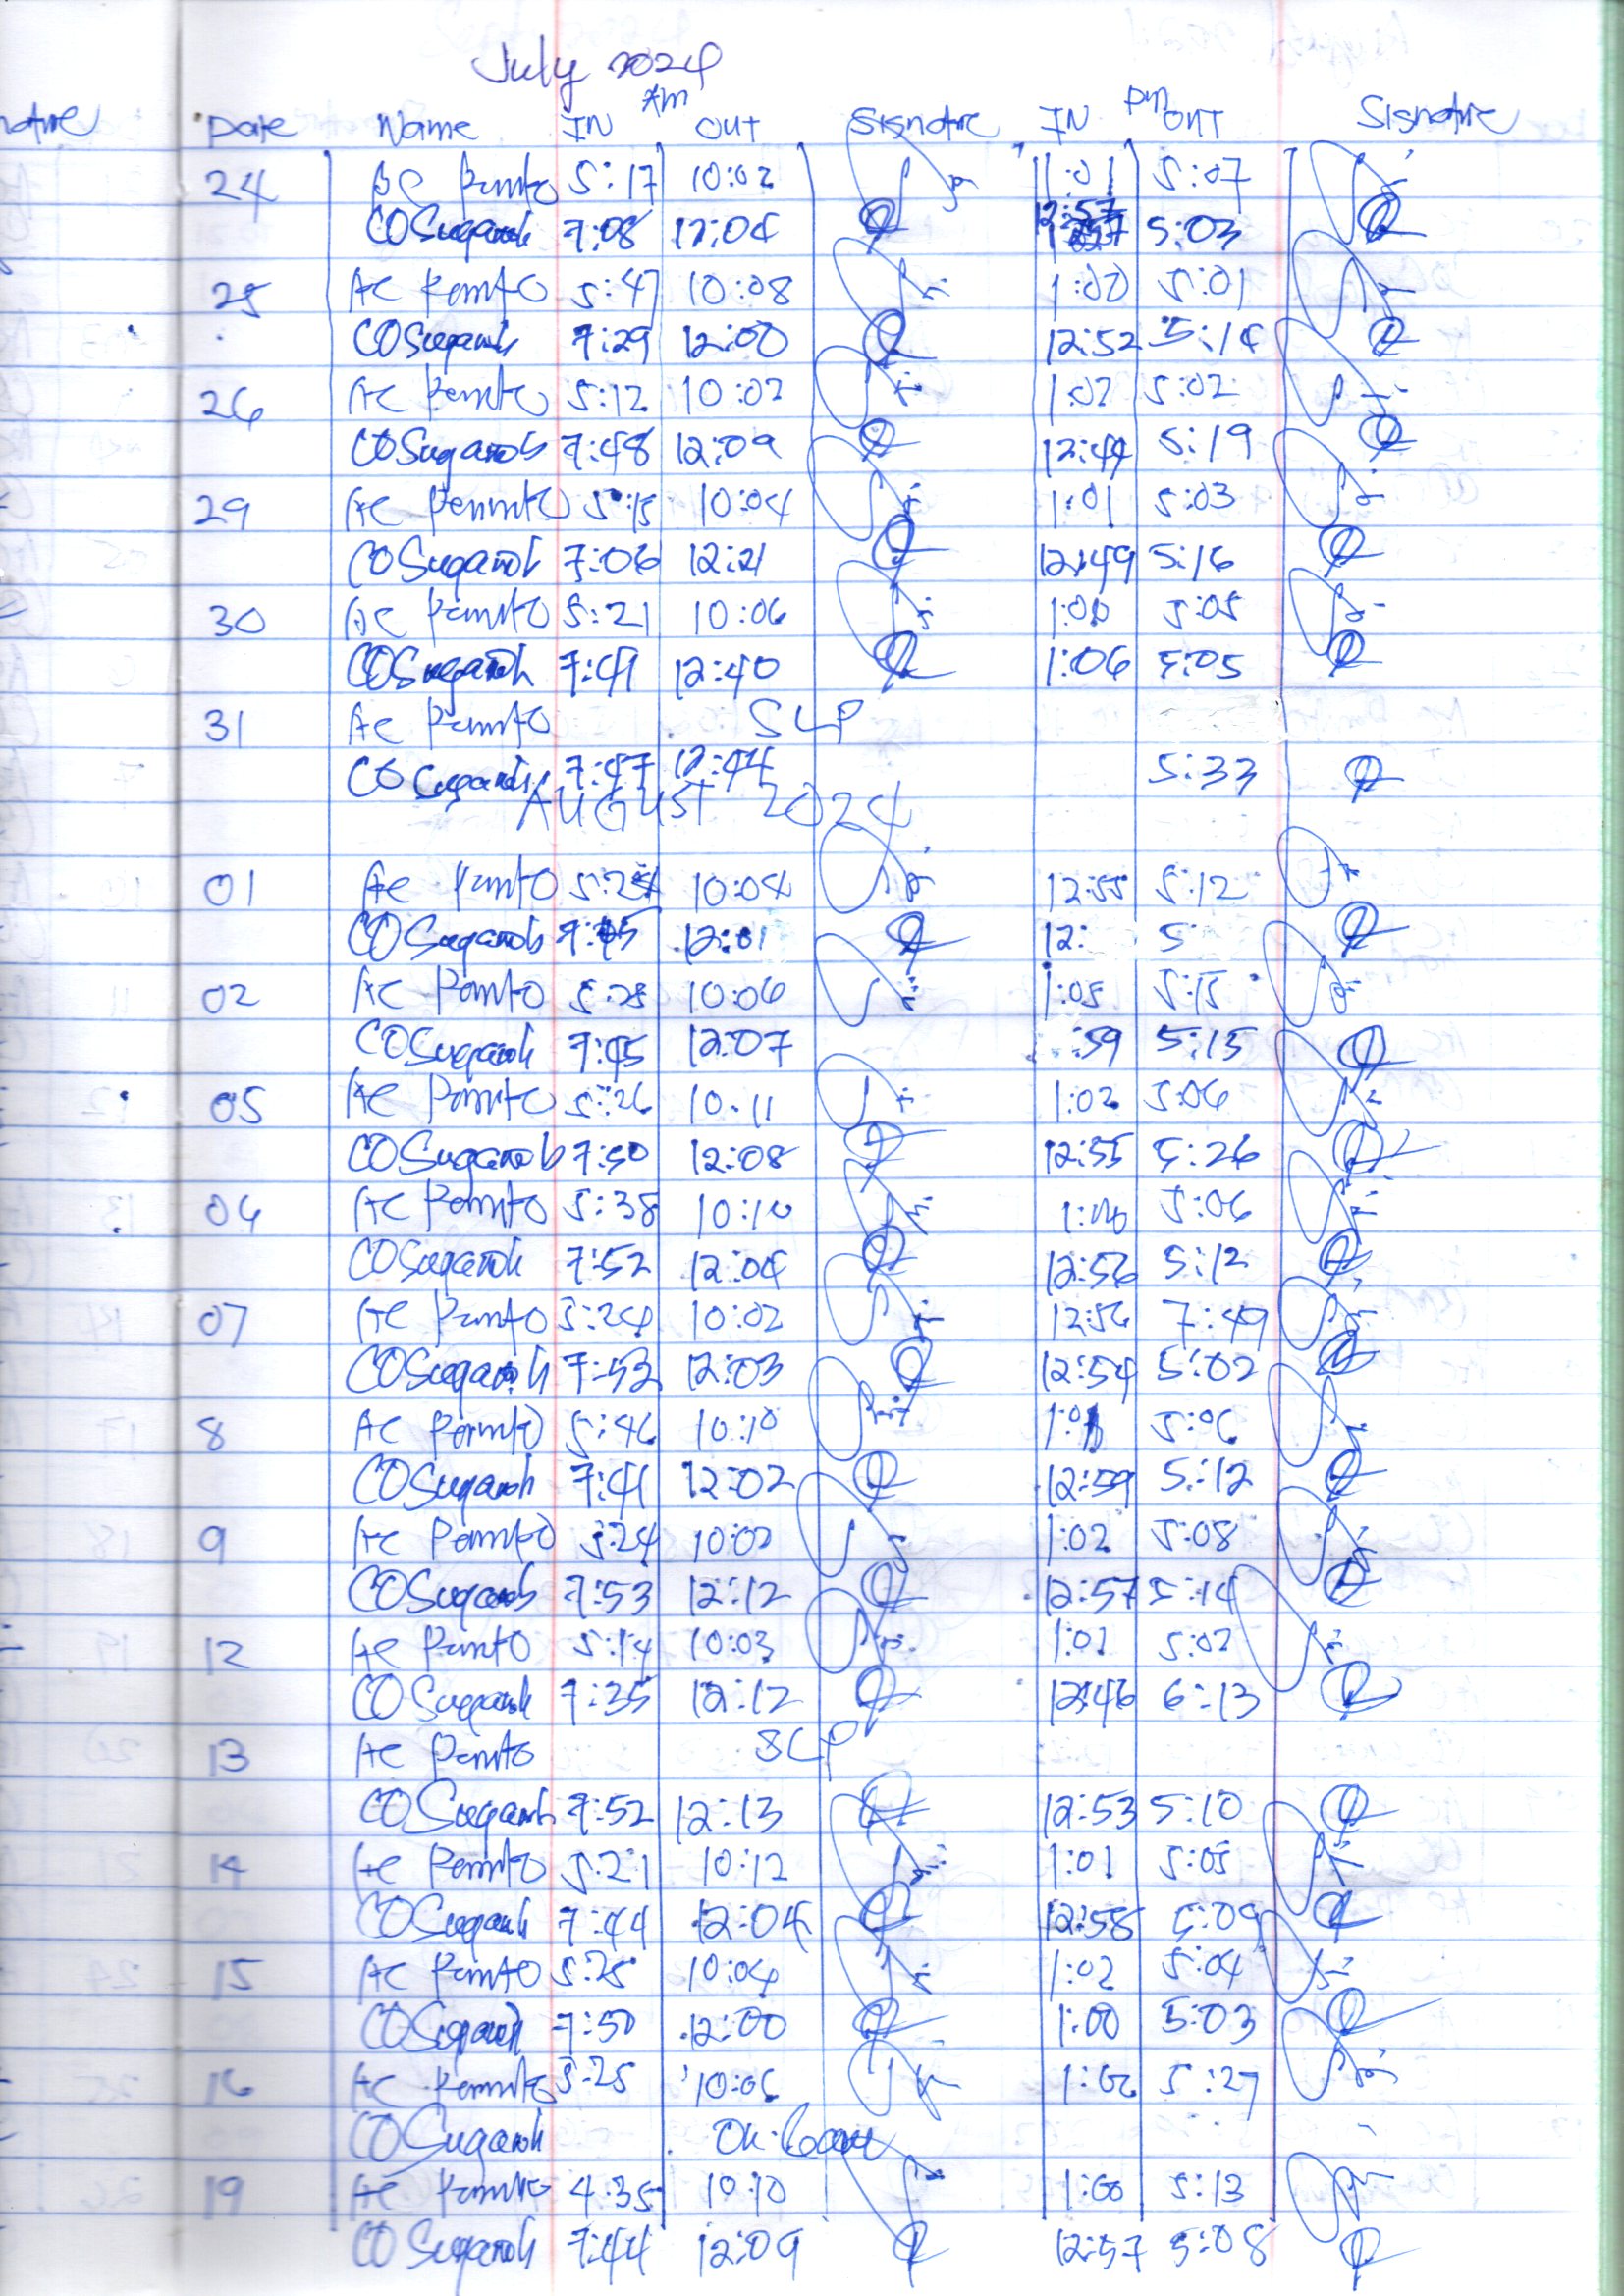 July 2024
Am pm
nature Date Name IN OUT Signature IN OUT Signature
24 AC 5:17 10:02 1:01 5:07
CO Sugarob 7:08 12:04 12:57 5:03
25 AC 5:47 10:08 1:00 5:01
CO Sugarob 7:29 12:00 12:52 5:14
26 AC 5:12 10:02 1:02 5:02
CO Sugarob 7:48 12:09 12:44 5:19
29 AC 5:15 10:04 1:01 5:03
CO Sugarob 7:06 12:21 12:49 5:16
30 AC 5:21 10:06 1:00 5:05
CO Sugarob 7:41 12:40 1:06 5:05
31 AC SLP
CO Sugarob 7:47 12:44 5:33
AUGUST 2024
01 AC 10:04 12:55 5:12
CO Sugarob 12:01 12: 5
02 AC 5:25 10:06 1:05 5:15
CO Sugarob 7:45 12:07 :59 5:15
05 AC 5:26 10:11 1:02 5:06
CO Sugarob 7:50 12:08 12:55 5:26
06 AC 5:38 10:10 1:00 5:06
CO Sugarob 7:52 12:04 12:56 5:12
07 AC 5:24 10:02 12:56 7:49
CO Sugarob 7:53 12:03 12:54 5:02
8 AC 5:46 10:10 5:06
CO Sugarob 7:41 12:02 12:59 5:12
9 AC 5:24 10:02 1:02 5:08
CO Sugarob 7:53 12:12 12:57 5:14
12 AC 5:14 10:03 1:02 5:02
CO Sugarob 7:35 12:12 12:46 6:13
13 AC SLP
CO Sugarob 7:52 12:13 12:53 5:10
14 AC 5:21 10:12 1:01 5:05
CO Sugarob 7:44 12:04 12:58 5:09
15 AC 5:25 10:04 1:02 5:04
CO Sugarob 7:50 12:00 1:00 5:03
16 AC 5:25 10:06 5:27
CO Sugarob On leave
19 AC 4:35 10:10 1:00 5:13
CO Sugarob 7:44 12:09 12:57 5:08